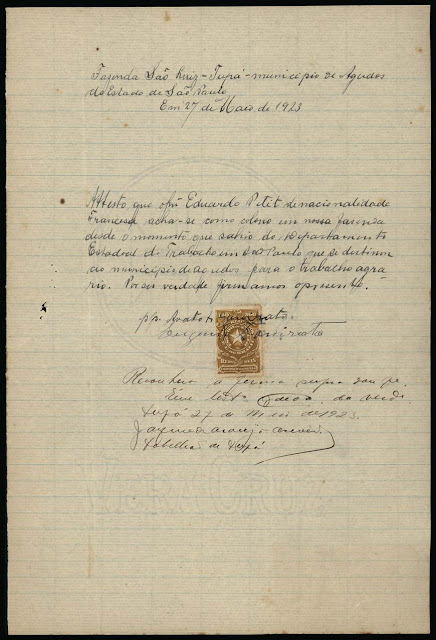 Fazenda São Luiz - Tupá - municipio de Agudos
do Estado de São Paulo
Em 27 de Maio de 1923
Attesto que o Sr Eduardo Petit de nacionalidade
Francesa acha-se como colono em nossa fasenda
desde o momento que sahio do Departamento
Estadoal do Trabalho em São Paulo que se destinou
ao municipio de Agudos para o trabalho agra
rio. Por ser verdade firmamos o presente.
pp.
Reconheço a firma supra dou fé.
Em test da verd.
Tupá 27 de Maio de 1923.
Tabellião de Tupá